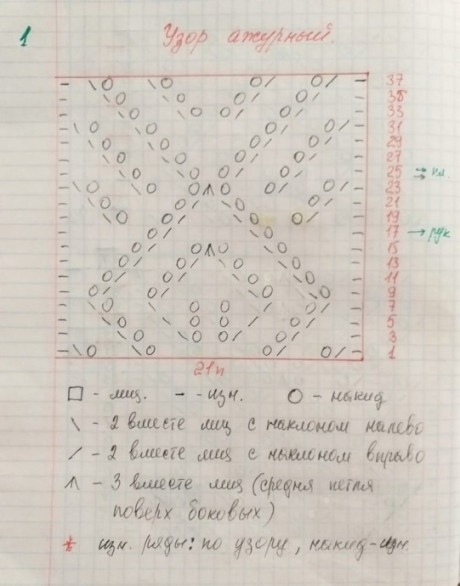 1
Узор ажурный.
37
35
33
31
29
27
25
23
21
19
17 → рук
15
13
11
9
7
5
3
1
21п
□ - лиц. - - изн. O - накид
\ - 2 вместе лиц с наклоном налево
/ - 2 вместе лиц с наклоном вправо
Λ - 3 вместе лиц (средня петля
поверх боковых)
* изн. ряды: по узору, накид-изн.